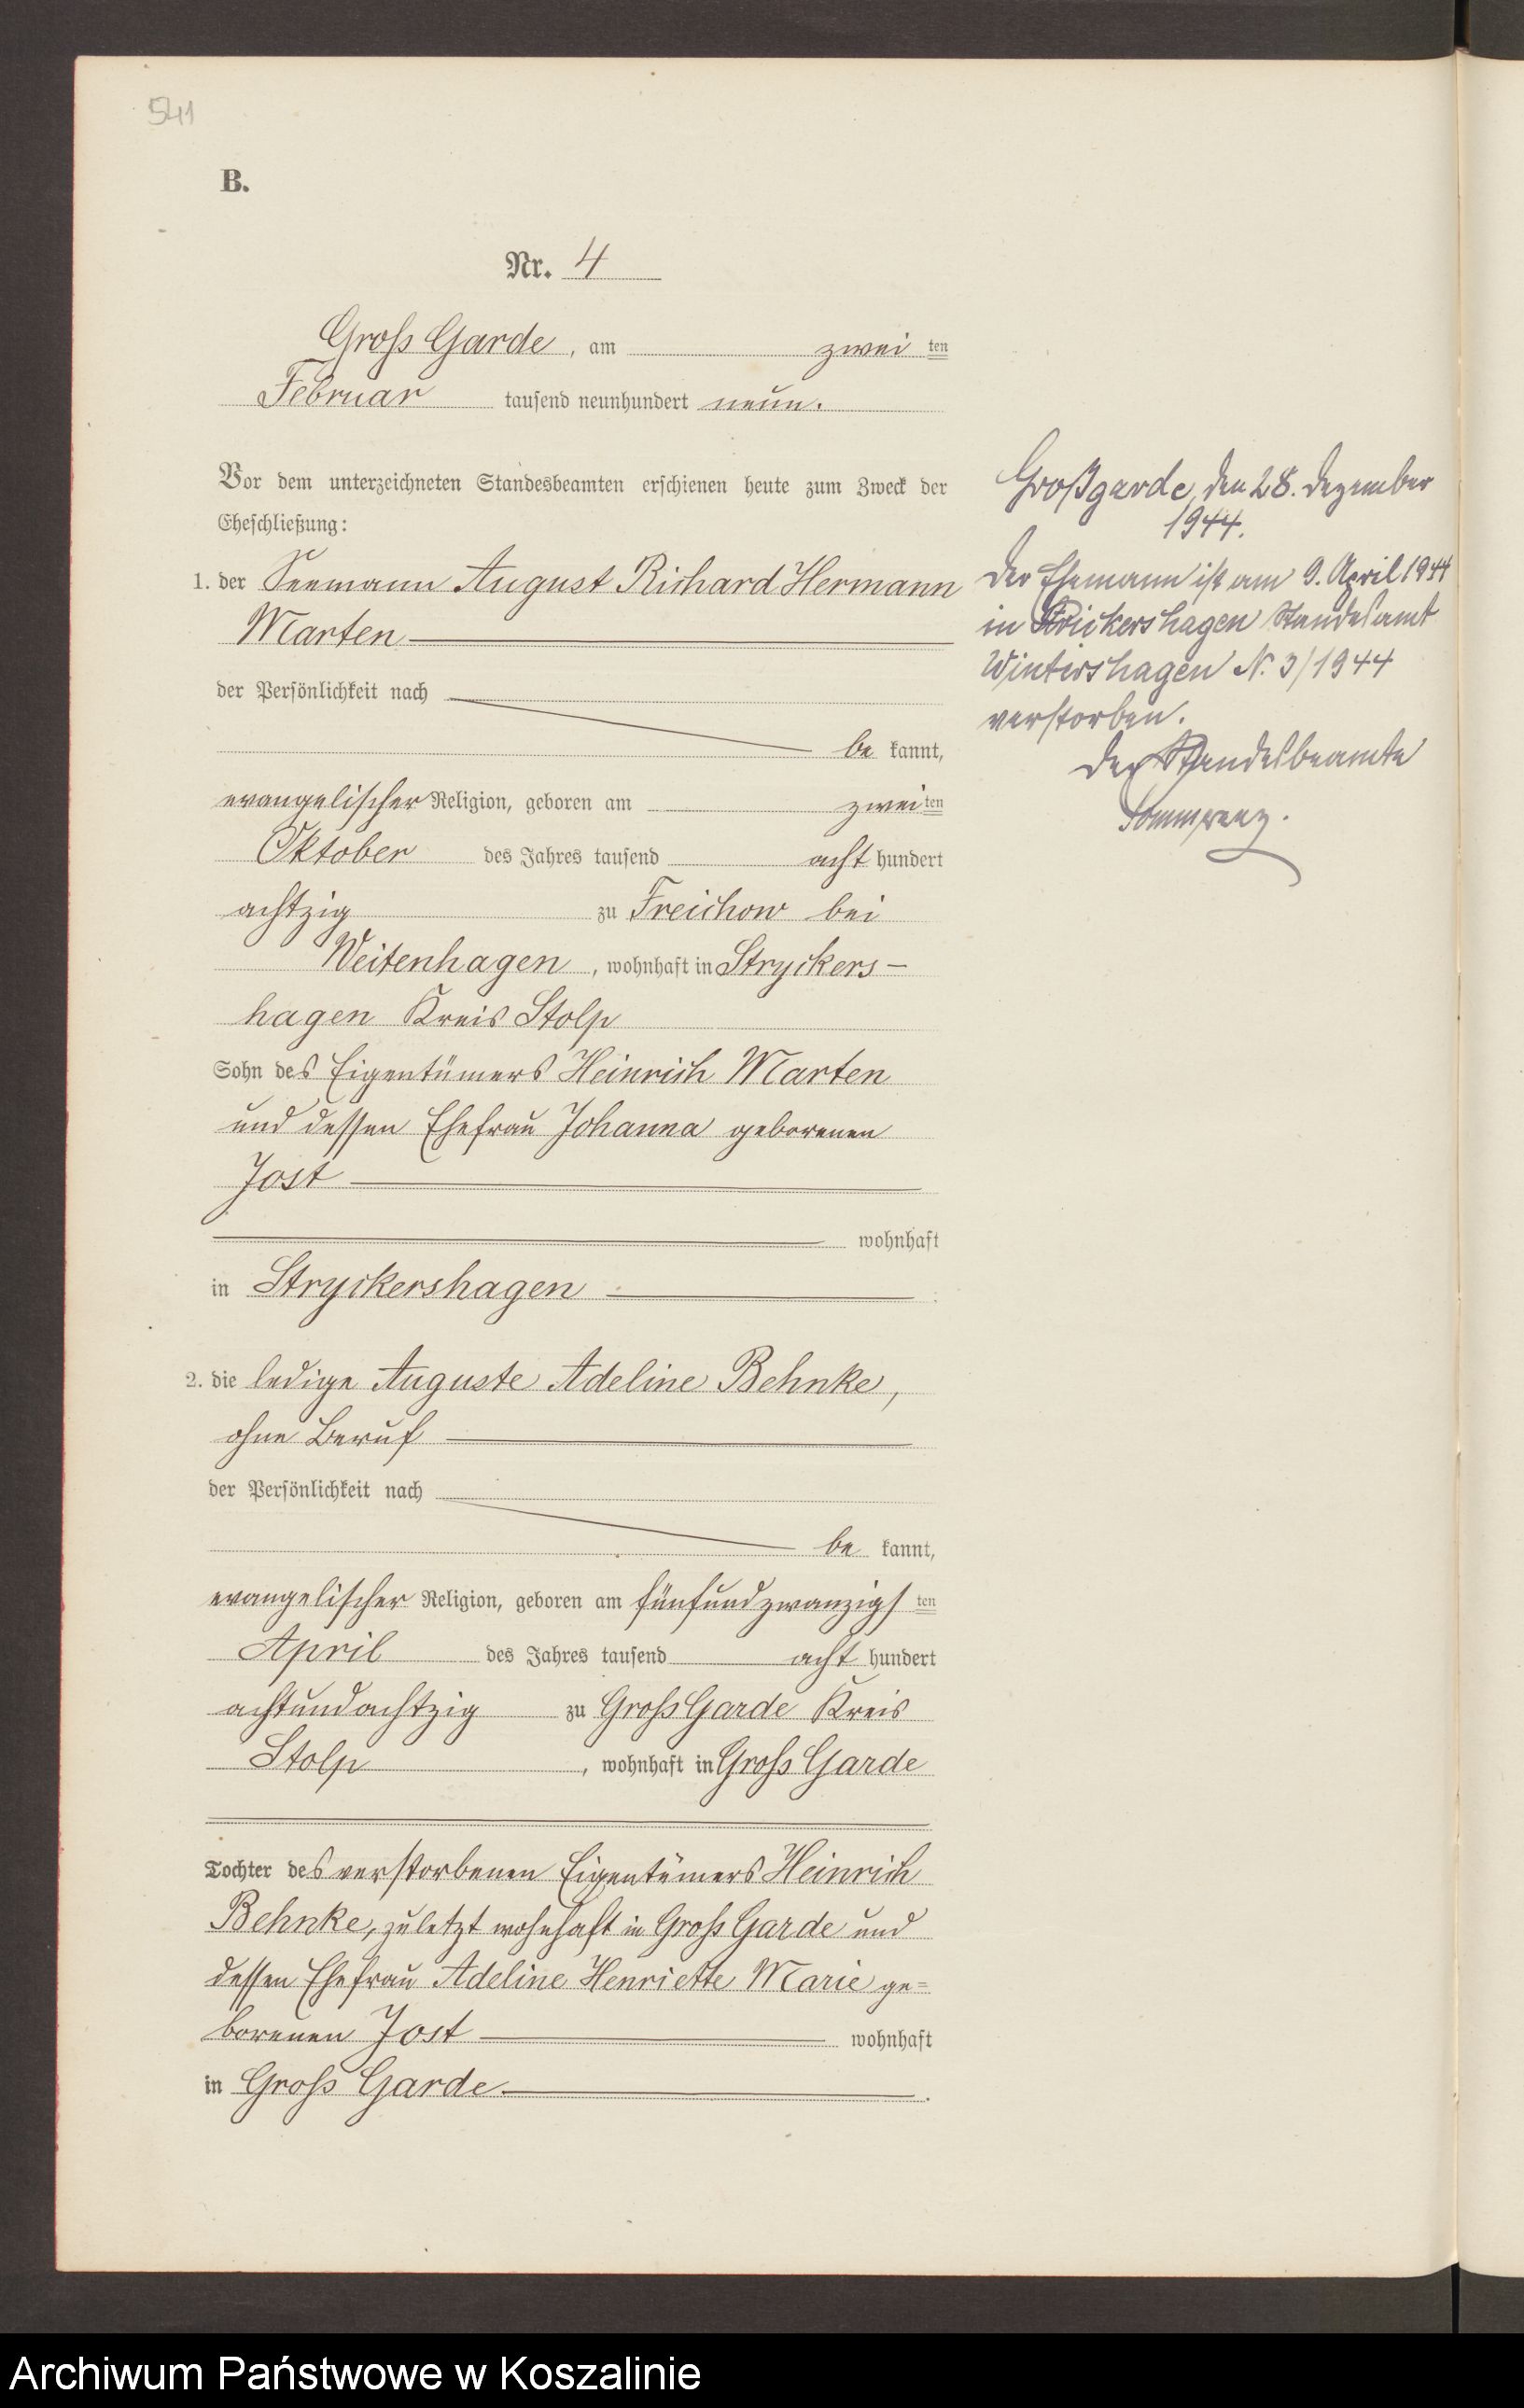 541
B.
Nr. 4
Gross Garde, am zwei ten
Februar tausend neunhundert neun.
Vor dem unterzeichneten Standesbeamten erschienen heute zum Zweck der
Eheschließung:
1. der Seemann August Richard Hermann
Marten
der Persönlichkeit nach
be kannt,
evangelischer Religion, geboren am zwei ten
Oktober des Jahres tausend acht hundert
achtzig zu Freichow bei
Weitenhagen, wohnhaft in Stryckers-
hagen Kreis Stolp
Sohn des Eigentümers Heinrich Marten
und dessen Ehefrau Johanna geborenen
Jost
wohnhaft
in Stryckershagen
2. die ledige Auguste Adeline Behnke,
ohne Beruf
der Persönlichkeit nach
be kannt,
evangelischer Religion, geboren am fünfundzwanzigs ten
April des Jahres tausend acht hundert
achtundachtzig zu Gross Garde Kreis
Stolp, wohnhaft in Gross Garde
Tochter des verstorbenen Eigentümers Heinrich
Behnke, zuletzt wohnhaft in Gross Garde und
dessen Ehefrau Adeline Henriette Marie ge=
borenen Jost wohnhaft
in Gross Garde.
Großgarde, den 28. Dezember
1944.
Der Ehemann ist am 9. April 1944
in Strickershagen Standesamt
Wintershagen N. 3/1944
verstorben.
Der Standesbeamte
Archiwum Państwowe w Koszalinie